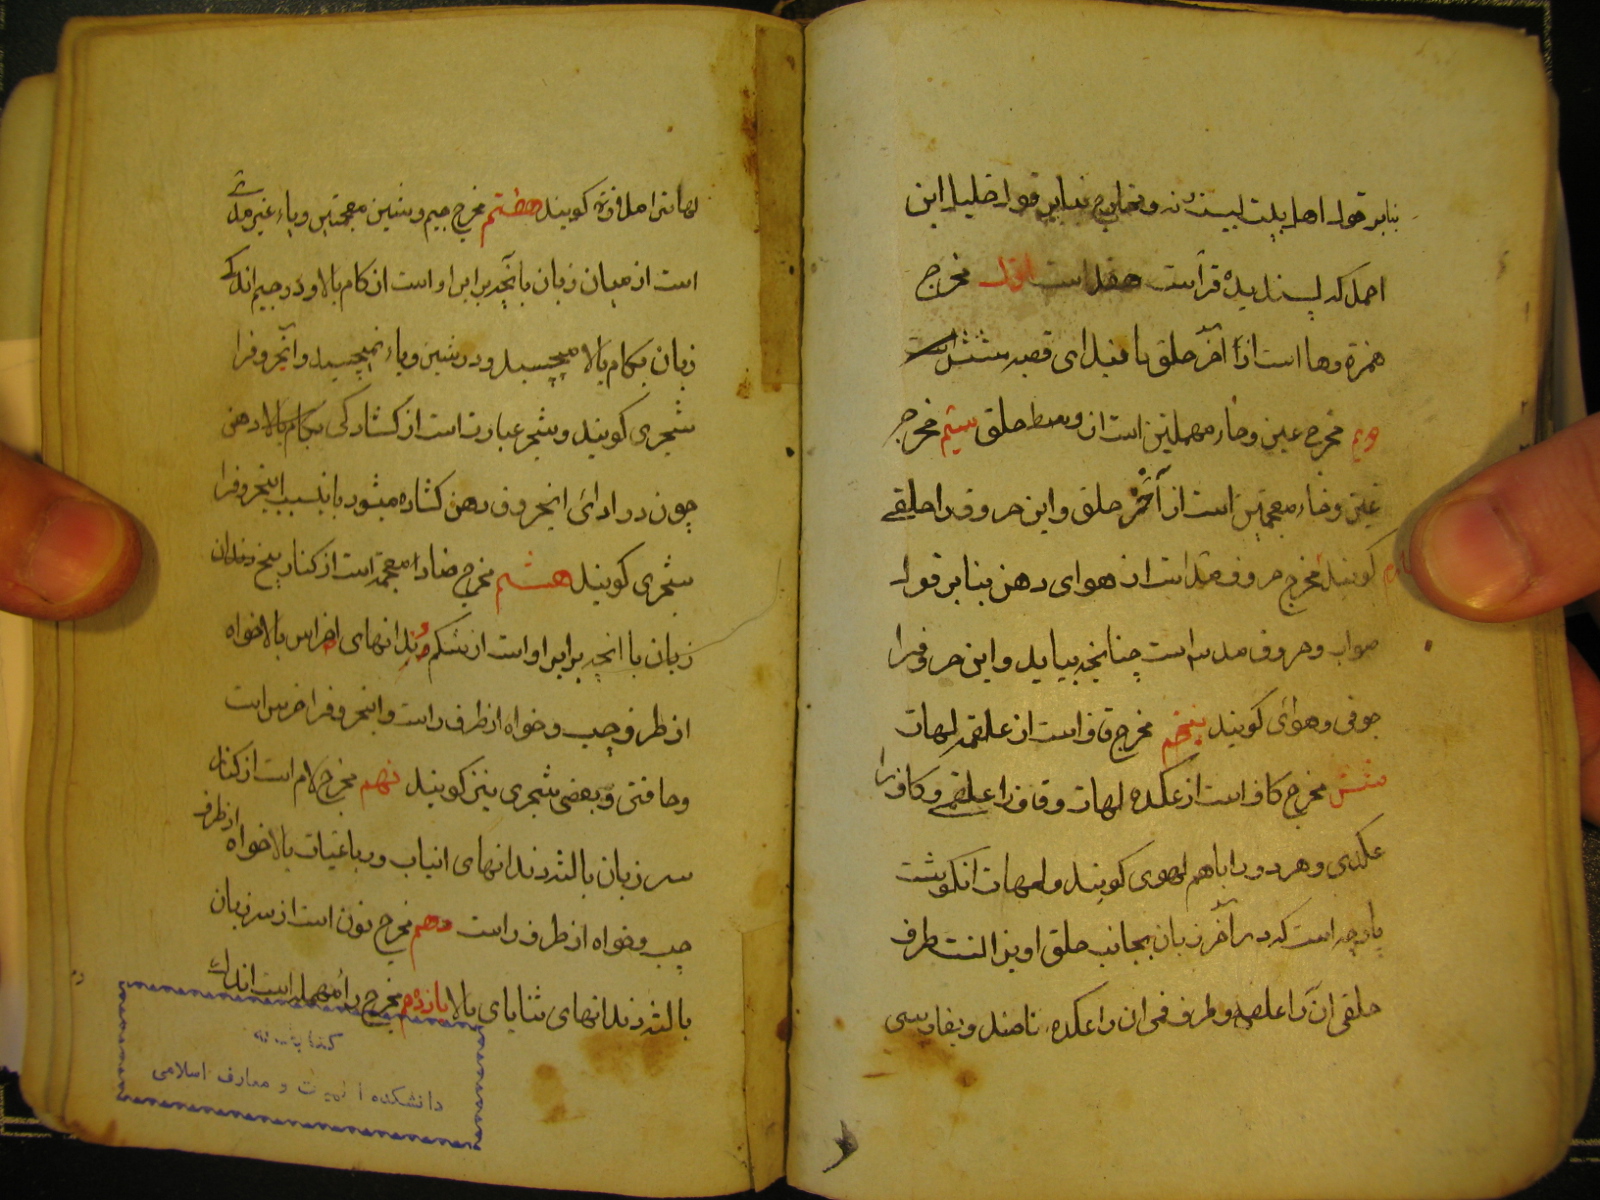 بنابر قول اهل بیت بیست نه و مخارج بنابر قول خلیل ابن
احمد که پسندیدهٔ قرآست هفده است اول مخرج
همزه وها است از آخر حلق با فیدای قصبه شش است
دویم مخرج عین وحاء مهملتین است از وسط حلق سیّم مخرج
غین وخاء معجمتین است از آخر حلق واین حروف را حلقی
کویند چهارم مخرج حروف مد است از هوای دهن بنابر قول
صواب وحروف مد سه است چنانچه بیاید واین حروف را
جوفی وهوائ کویند پنجم مخرج قاف است از علقمه لهات
شش مخرج کاف است از عکده لهات وقاف را علقمی وکاف را
عکدی وهر دو را باهم لهوی کویند ولهات انکوشت
پارچه است که در آخر زبان بجانب حلق اویز النت طرف
حلقی آن را علقمه وطرف فمی ان را عکده نامند وبفارسی
لهاة را ملازه کویند هفتم مخرج جیم وشین معجمتین ویاء غیر مدی
است از میان زبان با آنچه برابر او است از کام بالا ودر جیم اندک
زبان بکام بالا میچسبد ودر شین ویاء نمیچسبد وآنحروف را
شجری کویند وشجر عبارت است از کشادکی بکام بالا دهن
چون در ادائ اینحروف دهن کشاده میشود باینسبب اینحروف را
شجری کویند هشتم مخرج ضاد معجمه است از کنار بیخ دندان
زبان با انچه برابر او است از شکم دندانهای اضراس بالا خواه
از طرف چپ وخواه از طرف راست واینحروف را ضرس است
وحافتی وبعضی شجری نیز کویند نهم مخرج لام است از کنار
سر زبان بالثه دندانهای انیاب ورباعیات بالا خواه از طرف
چپ وخواه از طرف راست دهم مخرج نون است از سر زبان
بالثه دندانهای ثنایای بالا یازدهم مخرج راء مهمله است اندک
کتابخانه
دانشکده الهیات و معارف اسلامی